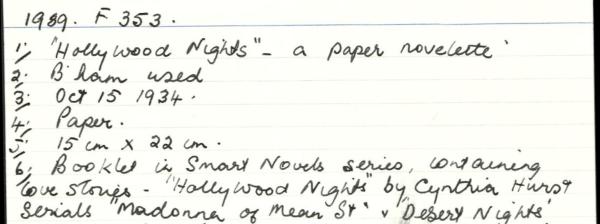 1989. F 353.
1; "Hollywood Nights" - a paper novelette
2; B'ham used
3; Oct 15 1934.
4; Paper.
5; 15 cm x 22 cm.
6; Booklet in Smart Novels series, containing
love stories - "Hollywood Nights" by Cynthia Hurst
Serials "Madonna of Mean St" & "Desert Nights"